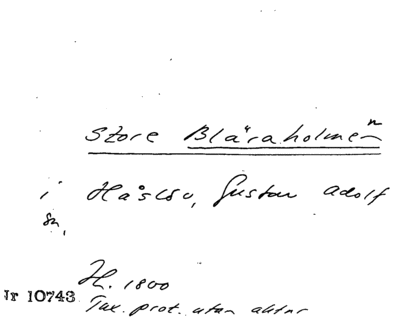 Store Blåraholmen
i Håslöv, Gustav Adolf
sn,
H. 1800
Nr 10743 Tax. prot. utan aktnr